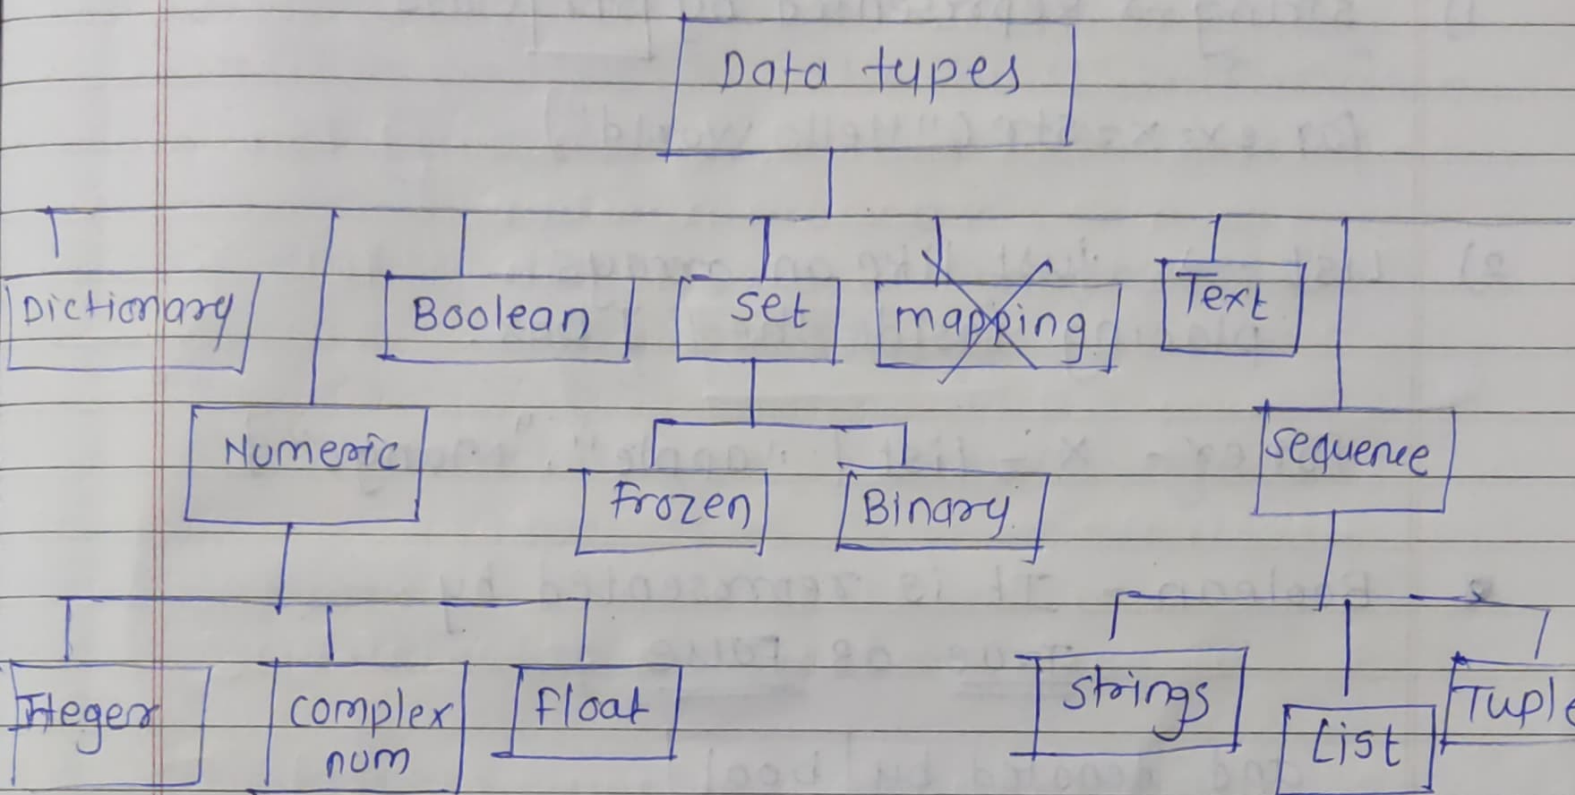 Data types
Dictionary
Boolean
set
mapping
Text
Numeric
Frozen
Binary
sequence
Integer
complex
num
float
strings
List
Tuple